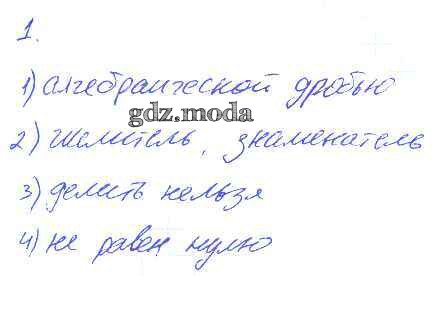 1.
1) алгебраической дробью
gdz.moda
2) числитель, знаменатель
3) делить нельзя
4) не равен нулю